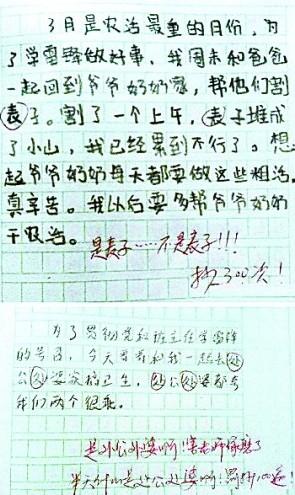 3月是农活最重的月份，为
了学雷锋做好事，我周末和爸爸
一起回到爷爷奶奶家，帮他们割
表子。割了一个上午，表子堆成
了小山，我已经累到不行了。想
起爷爷奶奶每天都要做这些粗活，
真辛苦。我以后要多帮爷爷奶奶
干农活。
是麦子……不是表子!!!
抄300次！
为了贯彻党和班主任学雷锋
的号召，今天哥哥和我一起去处
公处婆家搞卫生，处公处婆都夸
我们两个很乖。
是外公外婆啊！害老师琢磨了
半天什么是处公处婆啊！罚抄100遍！